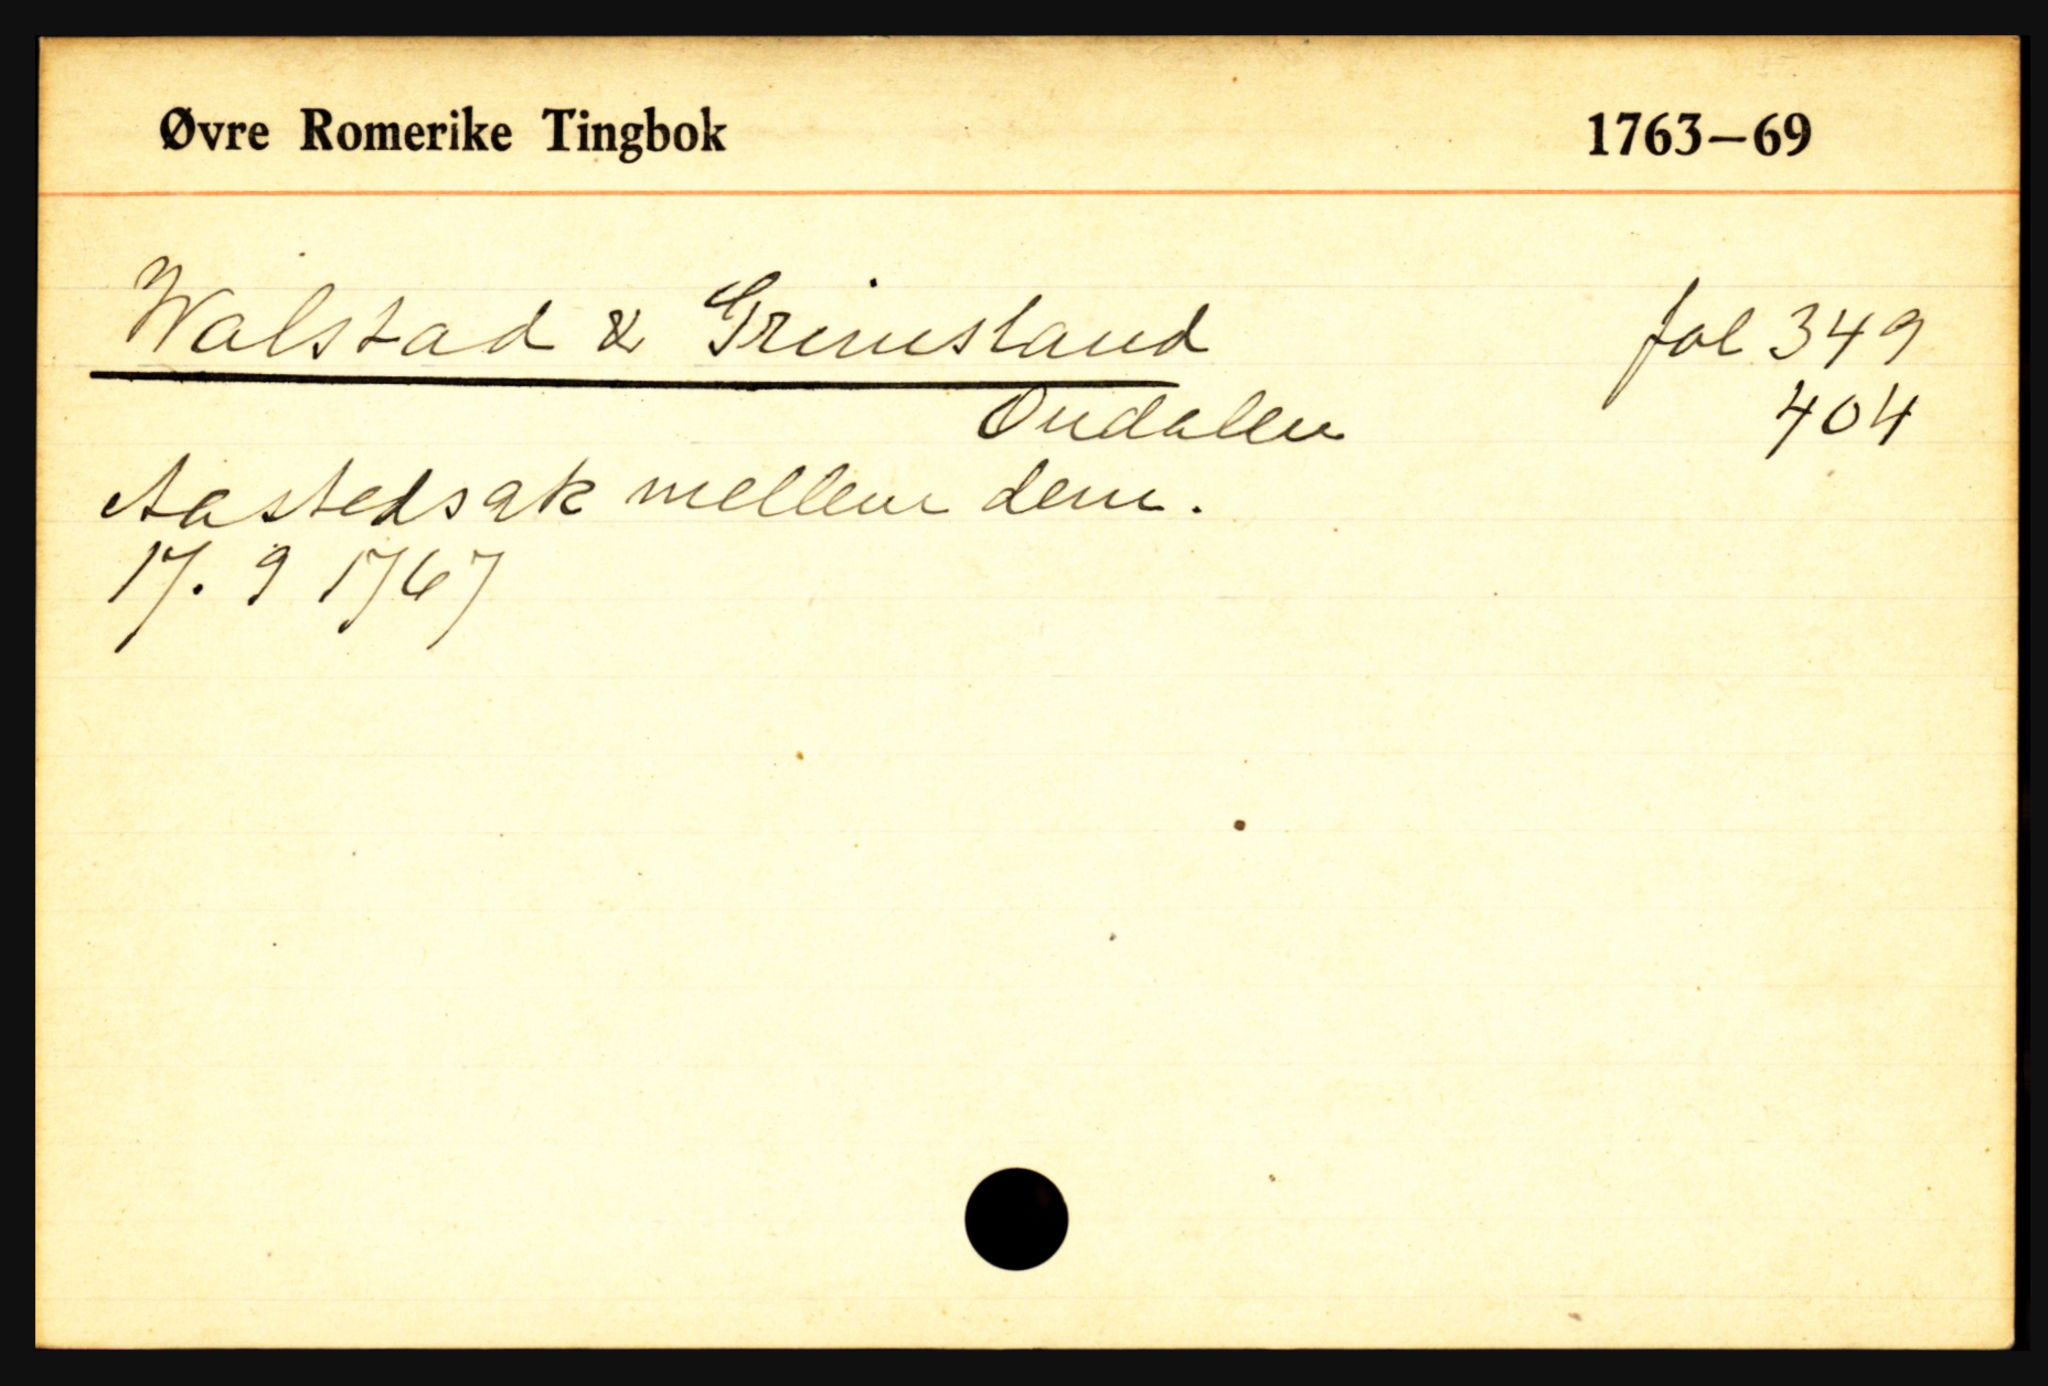 Øvre Romerike Tingbok 1763–69
Walstad & Grimsland fol 349
Oudalen 404
Aastedsak mellem dem.
17. 9 1767